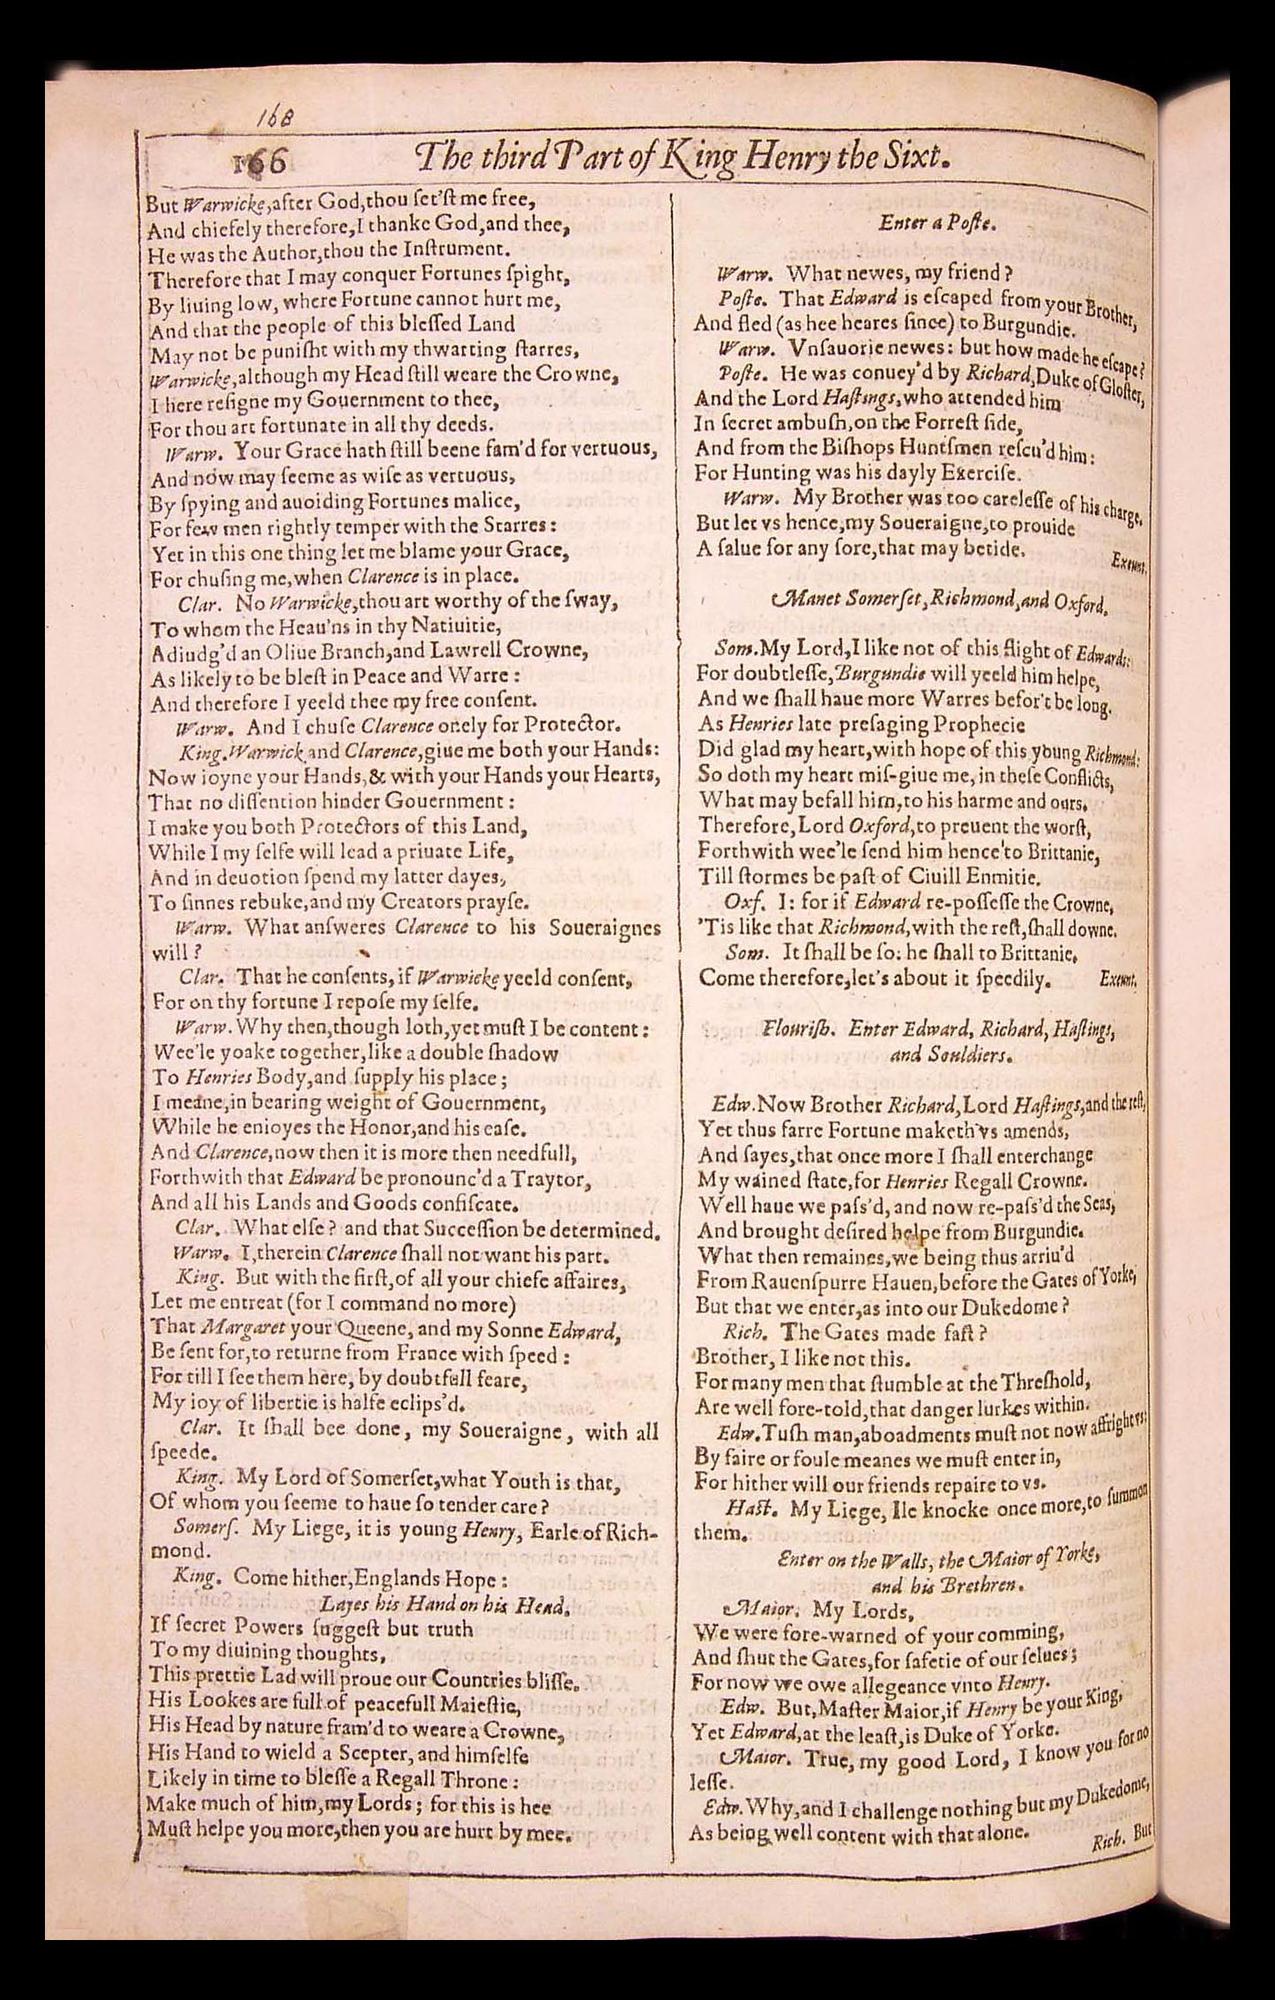 168
166
The third Part of King Henry the Sixt.
But Warwicke,after God,thou ſet'ſt me free,
And chiefely therefore,I thanke God,and thee,
He was the Author,thou the Inſtrument.
Therefore that I may conquer Fortunes ſpight,
By liuing low, where Fortune cannot hurt me,
And that the people of this bleſſed Land
May not be puniſht with my thwarting ſtarres,
Warwicke,although my Head ſtill weare the Crowne,
I here reſigne my Gouernment to thee,
For thou art fortunate in all thy deeds.
Warw. Your Grace hath ſtill beene fam'd for vertuous,
And now may ſeeme as wiſe as vertuous,
By ſpying and auoiding Fortunes malice,
For few men rightly temper with the Starres:
Yet in this one thing let me blame your Grace,
For chuſing me,when Clarence is in place.
Clar. No Warwicke,thou art worthy of the ſway,
To whom the Heau'ns in thy Natiuitie,
Adiudg'd an Oliue Branch,and Lawrell Crowne,
As likely to be bleſt in Peace and Warre:
And therefore I yeeld thee my free conſent.
Warw. And I chuſe Clarence onely for Protector.
King. Warwick and Clarence,giue me both your Hands:
Now ioyne your Hands,& with your Hands your Hearts,
That no diſſention hinder Gouernment:
I make you both Protectors of this Land,
While I my ſelfe will lead a priuate Life,
And in deuotion ſpend my latter dayes,
To ſinnes rebuke,and my Creators prayſe.
Warw. What anſweres Clarence to his Soueraignes
will?
Clar. That he conſents, if Warwicke yeeld conſent,
For on thy fortune I repoſe my ſelfe.
Warw. Why then,though loth,yet muſt I be content:
Wee'le yoake together,like a double ſhadow
To Henries Body,and ſupply his place;
I meane,in bearing weight of Gouernment,
While he enioyes the Honor,and his eaſe.
And Clarence,now then it is more then needfull,
Forthwith that Edward be pronounc'd a Traytor,
And all his Lands and Goods confiſcate.
Clar. What elſe? and that Succeſſion be determined.
Warw. I,therein Clarence ſhall not want his part.
King. But with the firſt,of all your chiefe affaires,
Let me entreat (for I command no more)
That Margaret your Queene, and my Sonne Edward,
Be ſent for,to returne from France with ſpeed:
For till I ſee them here, by doubtfull feare,
My ioy of libertie is halfe eclips'd.
Clar. It ſhall bee done, my Soueraigne, with all
ſpeede.
King. My Lord of Somerſet,what Youth is that,
Of whom you ſeeme to haue ſo tender care?
Somerſ. My Liege, it is young Henry, Earle of Rich-
mond.
King. Come hither,Englands Hope:
Layes his Hand on his Head.
If ſecret Powers ſuggeſt but truth
To my diuining thoughts,
This prettie Lad will proue our Countries bliſſe.
His Lookes are full of peacefull Maieſtie,
His Head by nature fram'd to weare a Crowne,
His Hand to wield a Scepter, and himſelfe
Likely in time to bleſſe a Regall Throne:
Make much of him,my Lords; for this is hee
Muſt helpe you more,then you are hurt by mee.
Enter a Poſte.
Warw. What newes, my friend?
Poſte. That Edward is eſcaped from your Brother,
And fled (as hee heares ſince) to Burgundie.
Warw. Vnſauorie newes: but how made he eſcape?
Poſte. He was conuey'd by Richard,Duke of Gloſter,
And the Lord Haſtings,who attended him
In ſecret ambuſh,on the Forreſt ſide,
And from the Biſhops Huntſmen reſcu'd him:
For Hunting was his dayly Exerciſe.
Warw. My Brother was too careleſſe of his charge.
But let vs hence,my Soueraigne,to prouide
A ſalue for any ſore,that may betide.
Exeunt.
Manet Somerſet,Richmond,and Oxford.
Som. My Lord,I like not of this flight of Edwards:
For doubtleſſe,Burgundie will yeeld him helpe,
And we ſhall haue more Warres befor't be long.
As Henries late preſaging Prophecie
Did glad my heart,with hope of this young Richmond:
So doth my heart miſ-giue me, in theſe Conflicts,
What may befall him,to his harme and ours.
Therefore, Lord Oxford,to preuent the worſt,
Forthwith wee'le ſend him hence to Brittanie,
Till ſtormes be paſt of Ciuill Enmitie.
Oxf. I: for if Edward re-poſſeſſe the Crowne,
'Tis like that Richmond,with the reſt,ſhall downe.
Som. It ſhall be ſo: he ſhall to Brittanie.
Come therefore,let's about it ſpeedily. Exeunt.
Flouriſh. Enter Edward, Richard, Haſtings,
and Souldiers.
Edw. Now Brother Richard,Lord Haſtings,and the reſt,
Yet thus farre Fortune maketh vs amends,
And ſayes,that once more I ſhall enterchange
My wained ſtate,for Henries Regall Crowne.
Well haue we paſs'd, and now re-paſs'd the Seas,
And brought deſired helpe from Burgundie.
What then remaines,we being thus arriu'd
From Rauenſpurre Hauen,before the Gates of Yorke,
But that we enter,as into our Dukedome?
Rich. The Gates made faſt?
Brother, I like not this.
For many men that ſtumble at the Threſhold,
Are well fore-told,that danger lurkes within.
Edw. Tuſh man,aboadments muſt not now affright vs:
By faire or foule meanes we muſt enter in,
For hither will our friends repaire to vs.
Haſt. My Liege, Ile knocke once more,to ſummon
them.
Enter on the Walls, the Maior of Yorke,
and his Brethren.
Maior. My Lords,
We were fore-warned of your comming,
And ſhut the Gates,for ſafetie of our ſelues;
For now we owe allegeance vnto Henry.
Edw. But,Maſter Maior,if Henry be your King,
Yet Edward,at the leaſt,is Duke of Yorke.
Maior. True, my good Lord, I know you for no
leſſe.
Edw. Why,and I challenge nothing but my Dukedome,
As being well content with that alone.
Rich. But